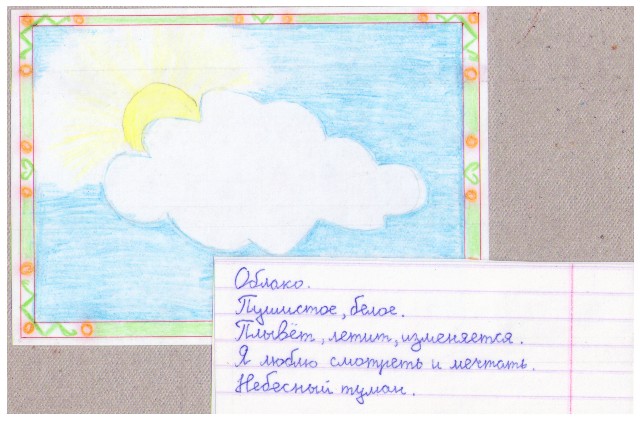 Облако.
Пушистое, белое.
Плывёт, летит, изменяется.
Я люблю смотреть и мечтать.
Небесный туман.